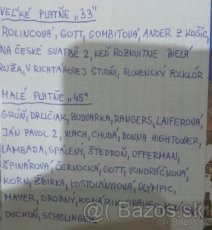 VEĽKÉ PLATNE „33"
ROLINCOVÁ, GOTT, GOMBITOVÁ, ANDER Z KOŠÍC,
NA ČESKÉ SVATBĚ 2, KEĎ ROZKVITNE BIELA
RUŽA, V RICHTÁROVEJ STUDNI, SLOVENSKÝ FOLKLÓR
MALÉ PLATNE „45"
GRÚŇ, DRUČIAK, BUDVARKA, RANGERS, LAIFEROVÁ,
JÁN PAVOL 2, VLACH, CHUDA, DONNA HIGHTOWER,
LAMBADA, SPÁLENÝ, ŠTEDROŇ, OFFERMAN,
ŠPINAROVÁ, ČERNOCKÁ, GOTT, VONDRÁČKOVÁ,
KORN, ZBIRKA, KOSTOLÁNYIOVÁ, OLYMPIC,
MAYER, DROBNÝ,
DUCHOŇ, SCHELINGER
Bazos.sk